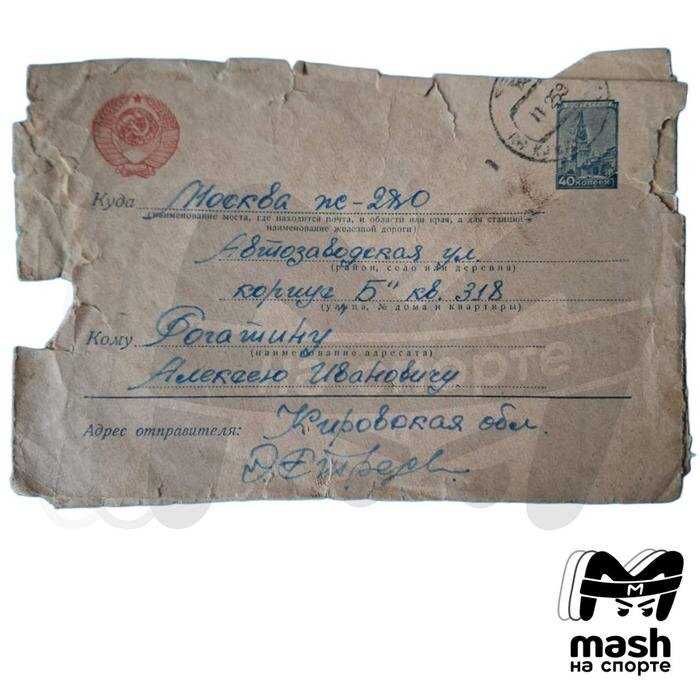 ПОЧТА СССР
40 КОПЕЕК
Куда Москва ж-280
(наименование места, где находится почта, и области или края, а для станций—
наименование железной дороги)
Автозаводская ул.
(район, село или деревня)
корпус "Б" кв. 318
(улица, № дома и квартиры)
Кому Рогатину
(наименование адресата)
Алексею Ивановичу.
Адрес отправителя: Кировская обл.
mash
на спорте